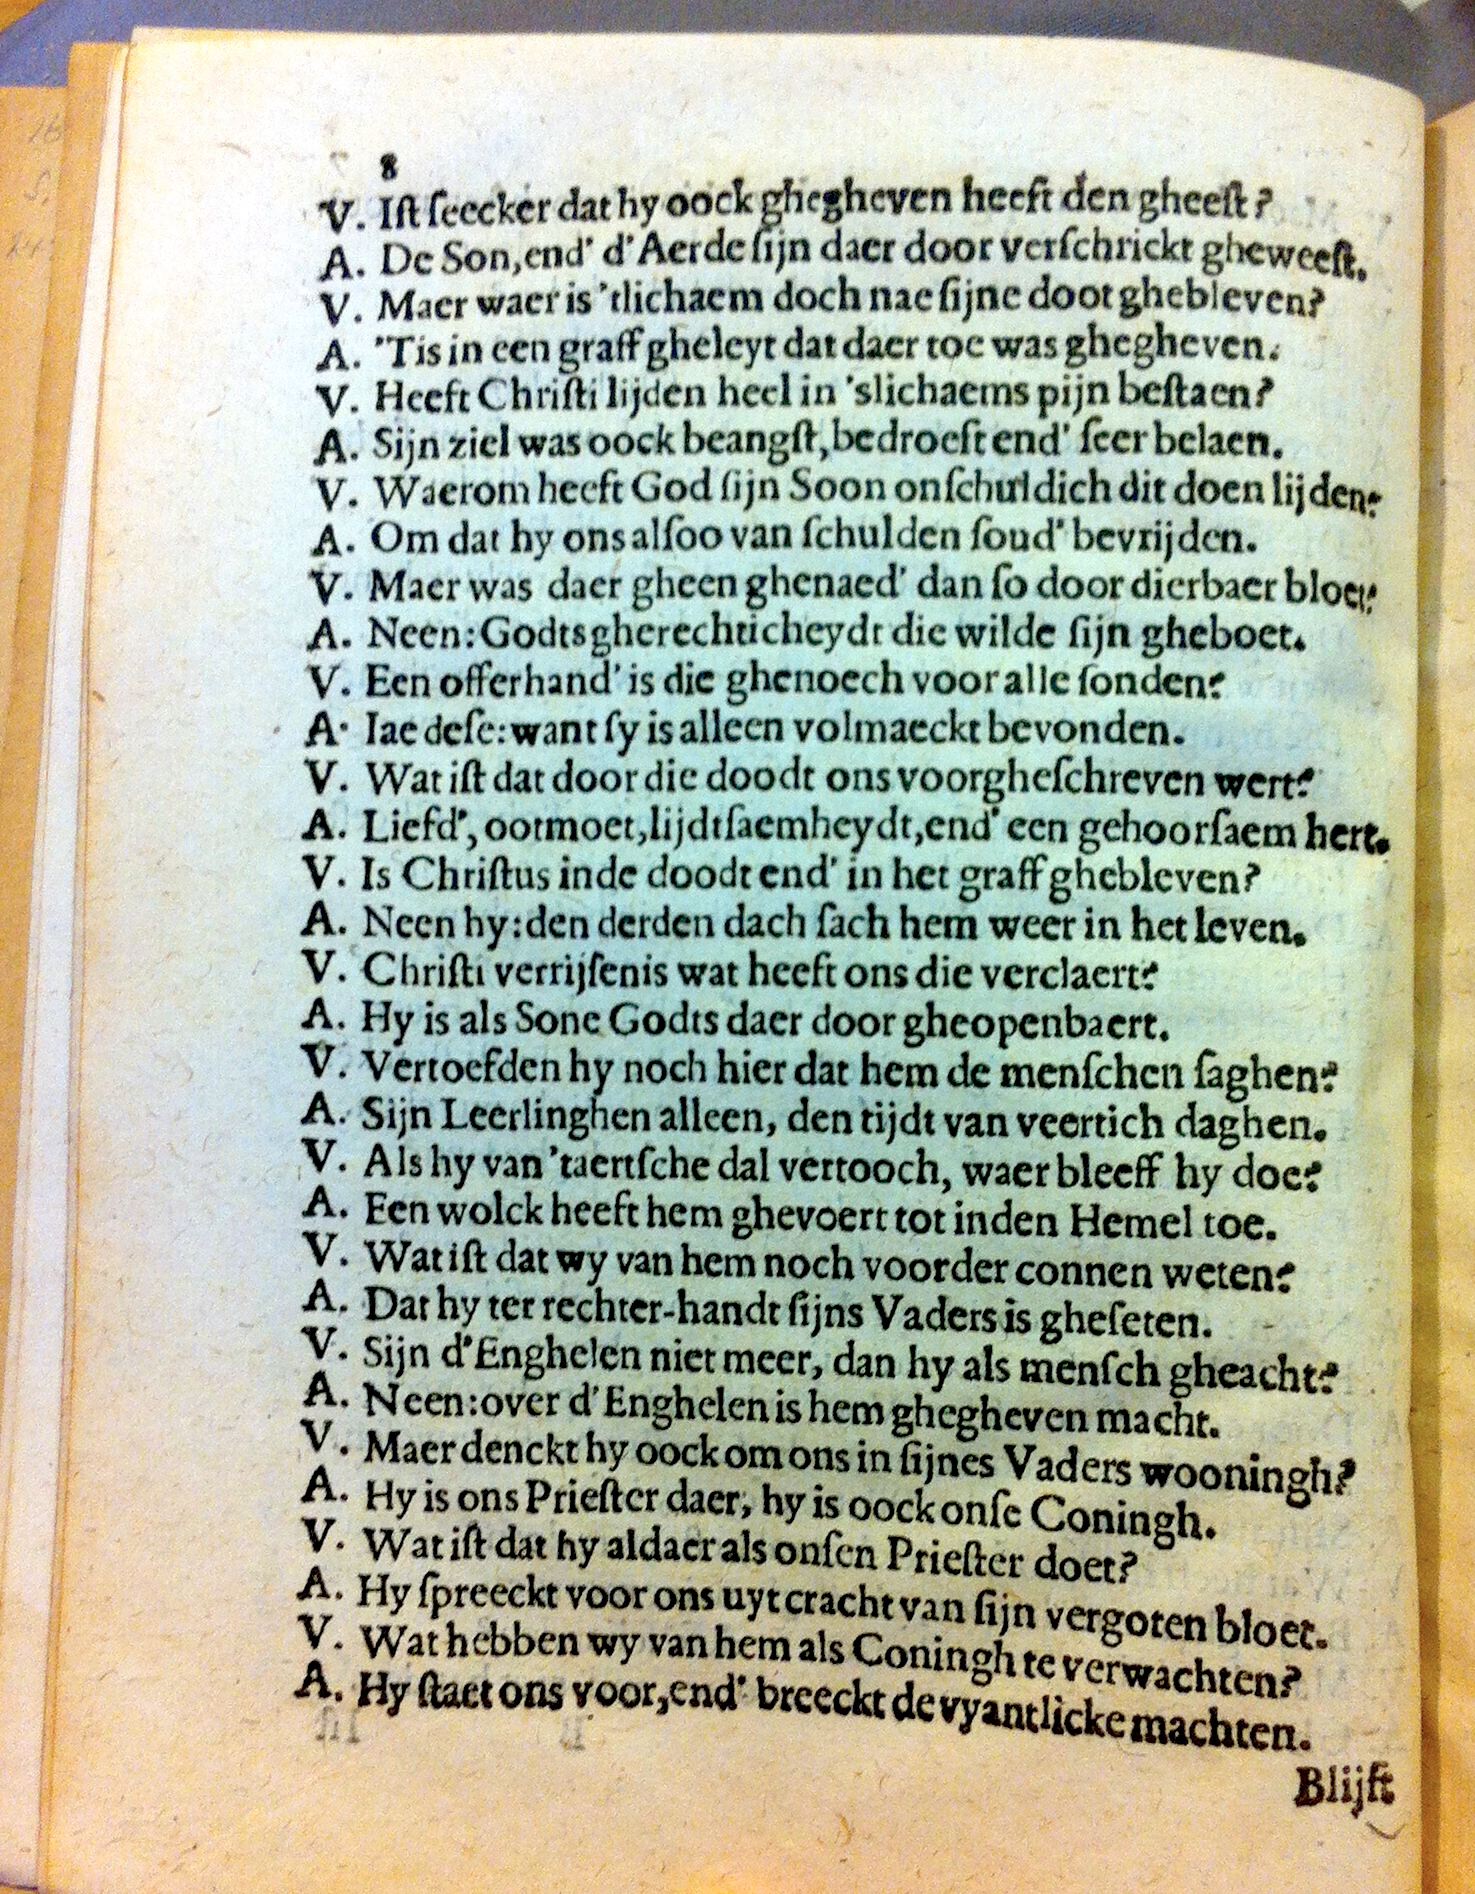 8
V. Iſt ſeecker dat hy oock ghegheven heeft den gheeſt?
A. De Son, end' d'Aerde ſijn daer door verſchrickt gheweeſt.
V. Maer waer is 'tlichaem doch nae ſijne doot ghebleven?
A. 'Tis in een graff gheleyt dat daer toe was ghegheven.
V. Heeft Chriſti lijden heel in 'slichaems pijn beſtaen?
A. Sijn ziel was oock beangſt, bedroeft end' ſeer belaen.
V. Waerom heeft God ſijn Soon onſchuldich dit doen lijden?
A. Om dat hy ons alſoo van ſchulden ſoud' bevrijden.
V. Maer was daer gheen ghenaed' dan ſo door dierbaer bloet?
A. Neen: Godts gherechticheydt die wilde ſijn gheboet.
V. Een offerhand' is die ghenoech voor alle ſonden?
A. Iae deſe: want ſy is alleen volmaeckt bevonden.
V. Wat iſt dat door die doodt ons voorgheſchreven wert?
A. Liefd', ootmoet, lijdtſaemheydt, end' een gehoorſaem hert.
V. Is Chriſtus inde doodt end' in het graff ghebleven?
A. Neen hy: den derden dach ſach hem weer in het leven.
V. Chriſti verrijſenis wat heeft ons die verclaert?
A. Hy is als Sone Godts daer door gheopenbaert.
V. Vertoefden hy noch hier dat hem de menſchen ſaghen?
A. Sijn Leerlinghen alleen, den tijdt van veertich daghen.
V. Als hy van 'taertſche dal vertooch, waer bleeff hy doe?
A. Een wolck heeft hem ghevoert tot inden Hemel toe.
V. Wat iſt dat wy van hem noch voorder connen weten?
A. Dat hy ter rechter-handt ſijns Vaders is gheſeten.
V. Sijn d'Enghelen niet meer, dan hy als menſch gheacht?
A. Neen: over d'Enghelen is hem ghegheven macht.
V. Maer denckt hy oock om ons in ſijnes Vaders wooningh?
A. Hy is ons Prieſter daer, hy is oock onſe Coningh.
V. Wat iſt dat hy aldaer als onſen Prieſter doet?
A. Hy ſpreeckt voor ons uyt cracht van ſijn vergoten bloet.
V. Wat hebben wy van hem als Coningh te verwachten?
A. Hy ſtaet ons voor, end' breeckt de vyantlicke machten.
Blijft